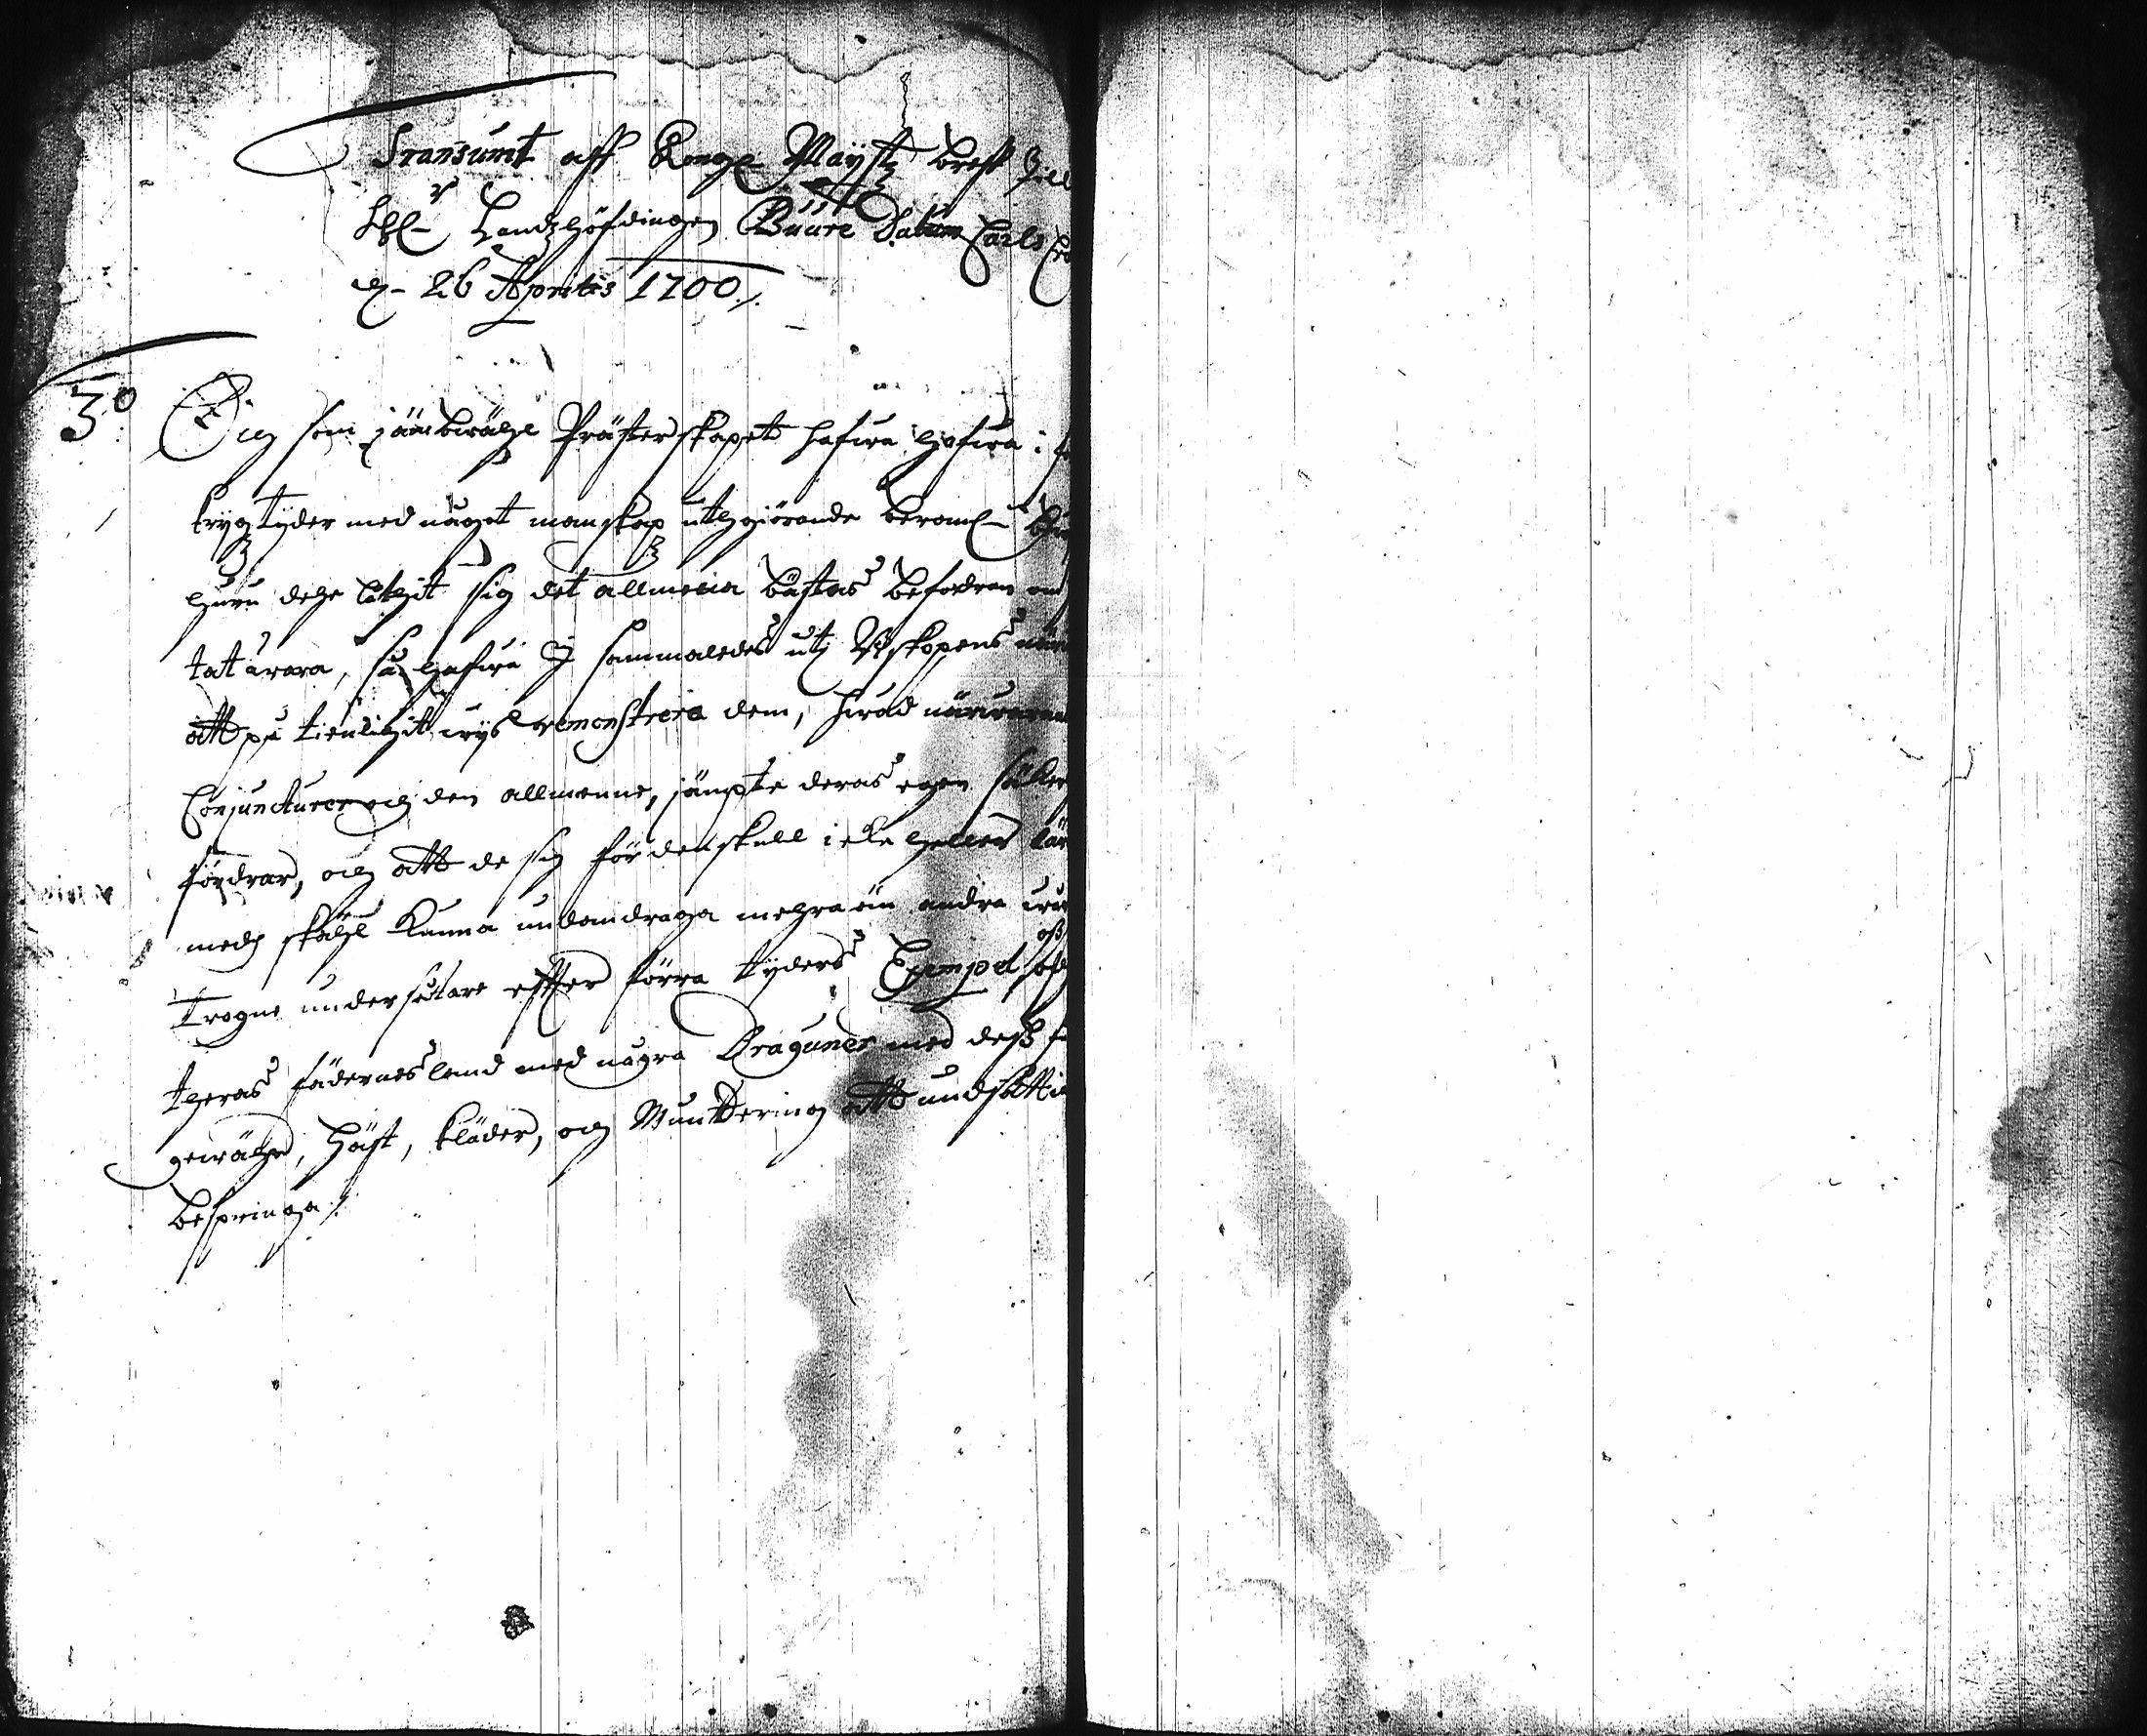 Transumt aff Kongl Maÿttz breff till
H:r Landzhöfdingen Buure Datum Carls
d. 26 Aprilis 1700./.
3:o Och som jämbwähl Prästerskapet hafwa hafwa i
krygztijder med någet manskap uthgiörande
huru dehe låthit sig det allmena bästas befodran
tat wara, så hafwa I sammaledes uti Biskopens
att på tienligit wijs remonstrera dem, hwad närwarande
Conjuncturer och den allmenne, jämpte deras egen säker
fordrar, och att de sig för den skull icke heller
medh skähl kunna undandraga mehra än andra
trogne undersåtare effter förra tijders Exempel
theras fädernesland med några Dragoner med dess
gewähr, häst, kläder, och Muntdering att undsättia
bespringa ./.